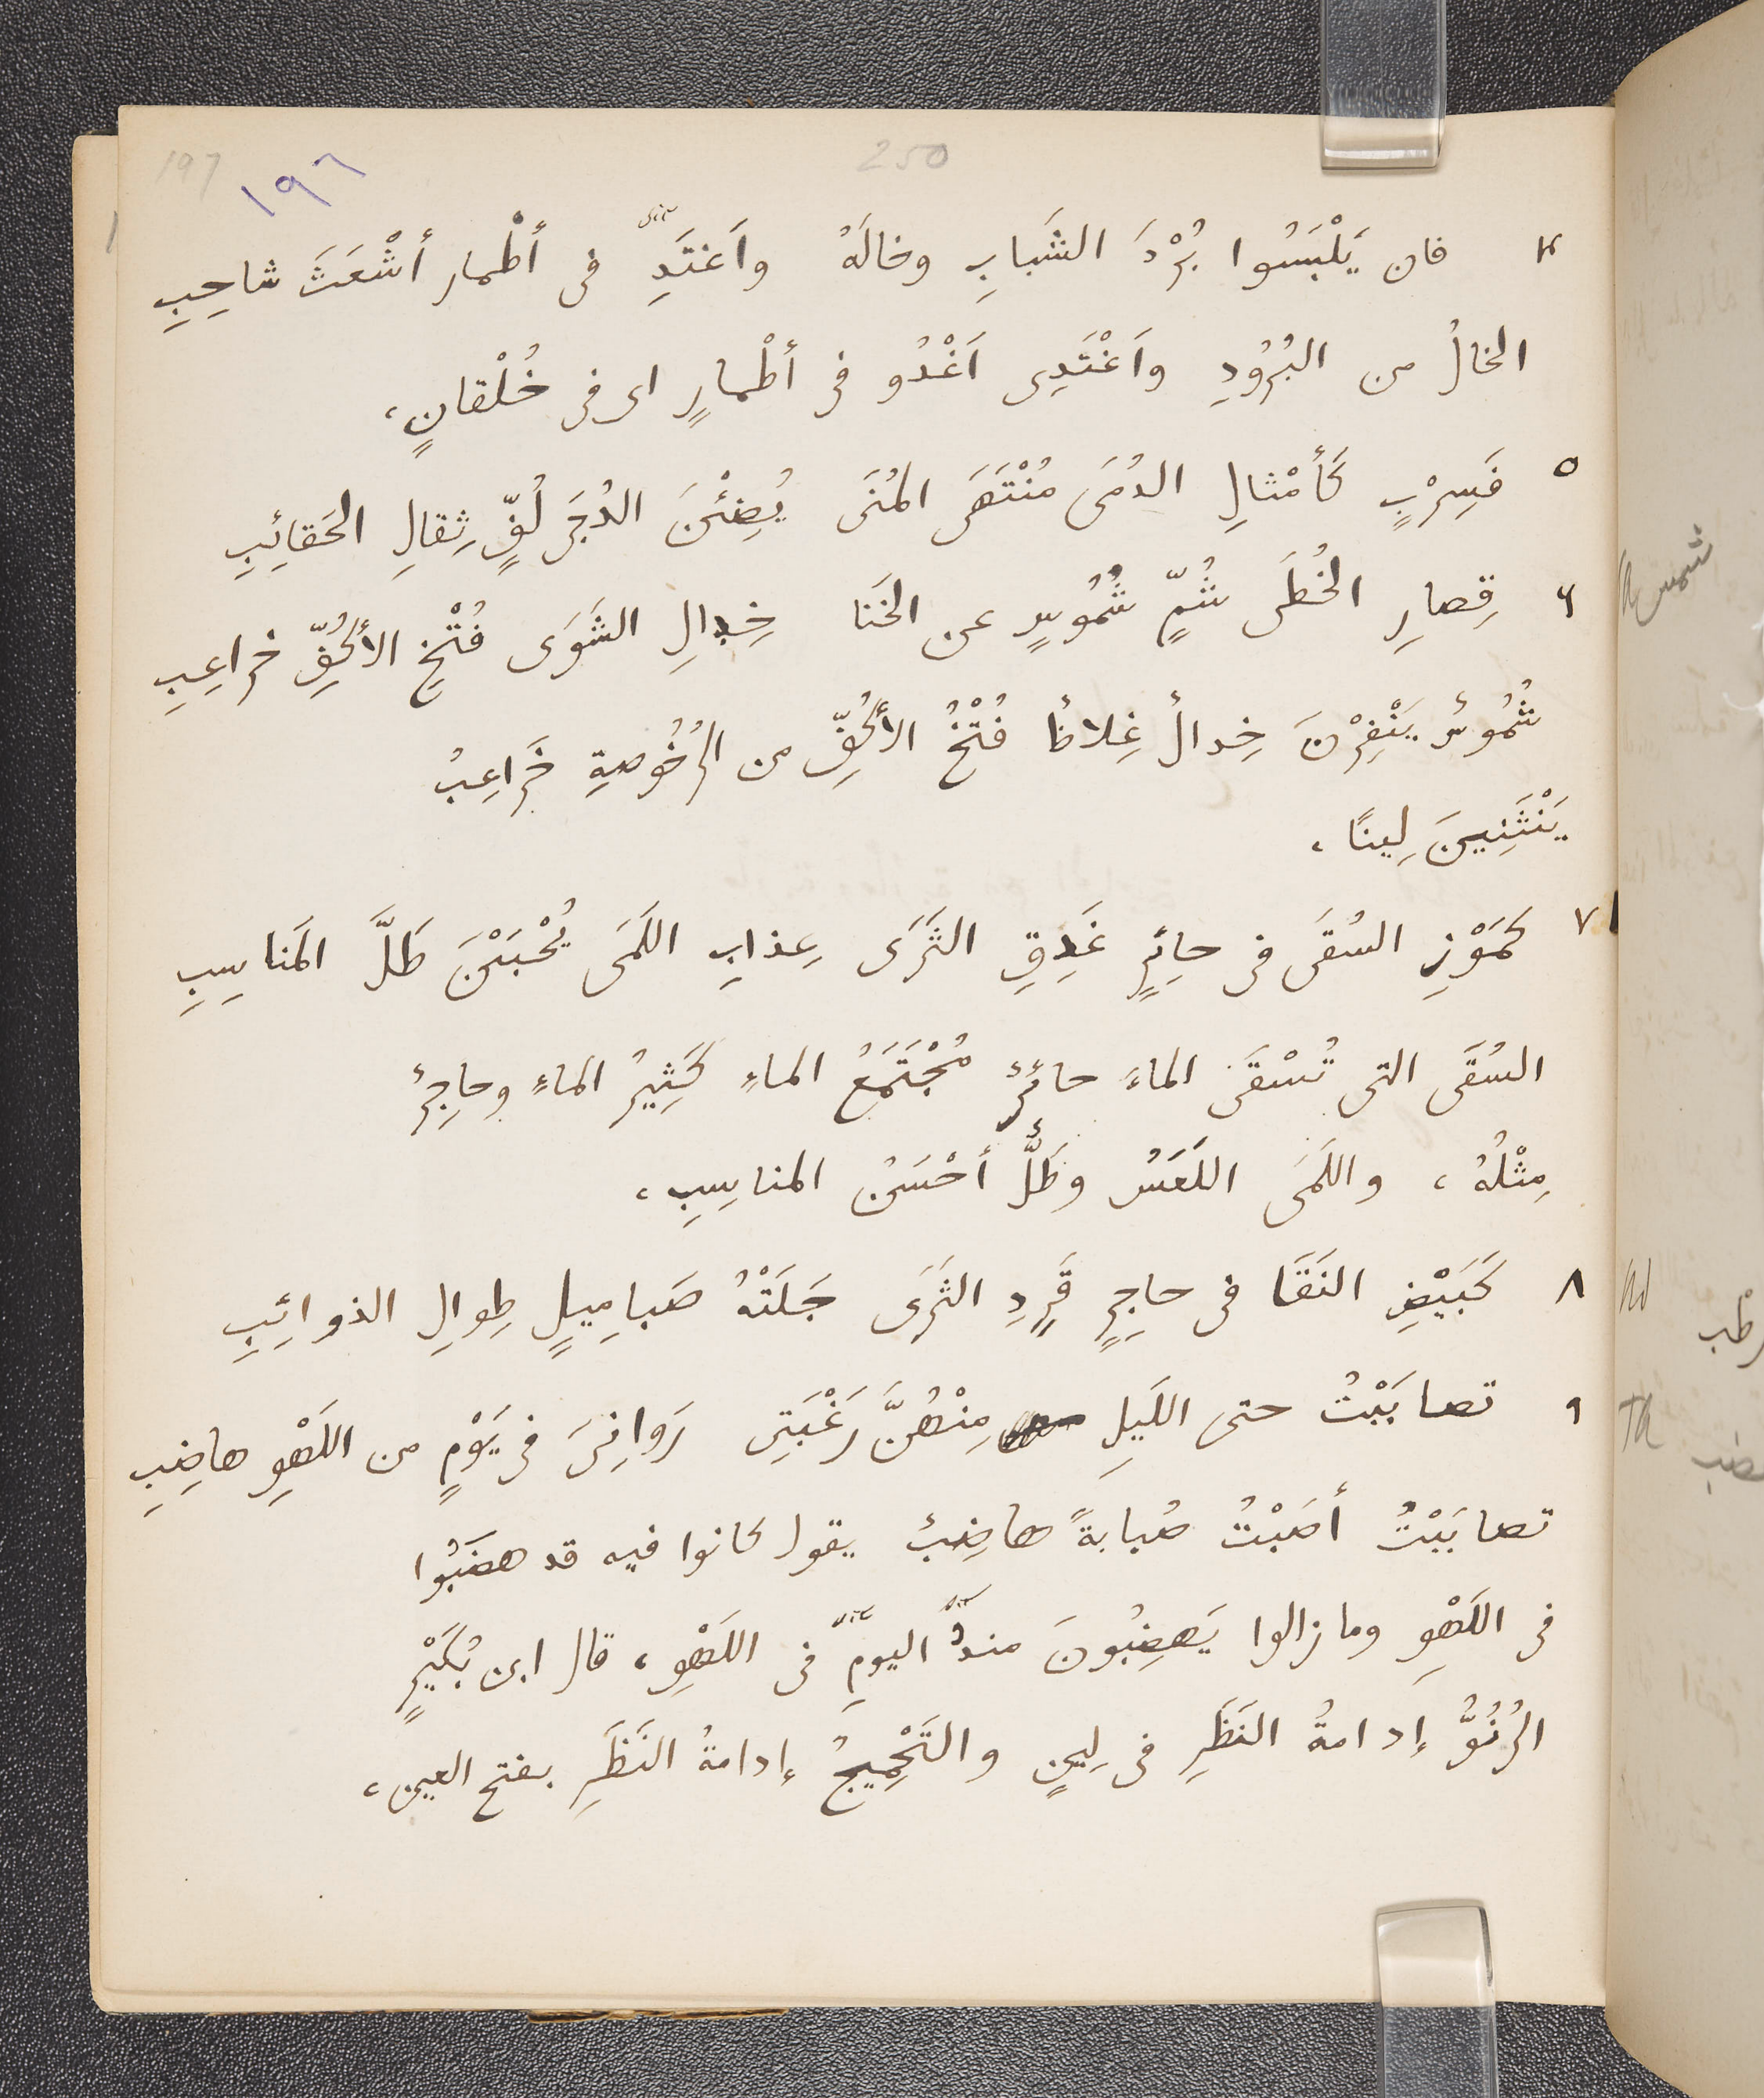 197 ١٩٦ 250
٤ فان يَلْبَسُوا بُرْدَ الشَبابِ وخالَهُ واَغتَدِ في أطْمار أشْعَثَ شاحِبِ
الخالُ من البُرُودِ واَغْتَدِى اَغْدُو في أطْمارٍ اى في خُلْقانٍ،
٥ فَسِرْبٍ كَأمْثالِ الدُمَى مُنْتَهَى المُنَى يُضِئْنَ الدُجَى لُفٍّ ثِقالِ الحَقائِبِ
٦ قِصارِ الخُطَى شُمٍّ شُمُوسٍ عن الخَنا خِدالِ الشَوَى فُتْخِ الأكُفِّ خراعِبِ
شُمُوسٌ يَنْفِرْنَ خِدالٌ غِلاظٌ فُتْخُ الأكُفِّ من الرُخُوصةِ خَراعِبُ
يَنْثَنِينَ لِينًا،
٧ كَمَوْزِ السُقَى في حائِرٍ غَدِقِ الثَرَى عِذابِ اللَمَى يُحْبَبْنَ طَلَّ المَناسِبِ
السُقَى التى تُسْقَى الماءَ حائرٌ مُجْتَمَعُ الماءِ كَثِيرُ الماءِ وحاجِرٌ
مِثْلُهُ، واللَمَى اللَعَسُ وطَلٌّ أحْسَنُ المناسِبِ،
٨ كَبَيْضِ النَقَا في حاجِرٍ قَرِدِ الثَرَى جَلَتْهُ صَبامِيلٍ طِوالِ الذوائِبِ
٩ تصابَبْتُ حتى اللَيلِ مِنْهُنَّ رَغْبَتِى رَوانِىَ في يَوْمٍ من اللَهْوِ هاضِبِ
تصابَبْتُ أصَبْتُ صُبابةً هاضِبٌ يقول كانوا فيه قد هضَبُوا
في اللَهْوِ وما زالوا يَهضِبُونَ منذُ اليومِ في اللَهْوِ، قال ابن بُكَيْرٍ
الرُنُوُّ إدامةُ النَظَرِ في لِينٍ والتَحْمِيجُ إدامةُ النَظَرِ بفتح العين،
شمس